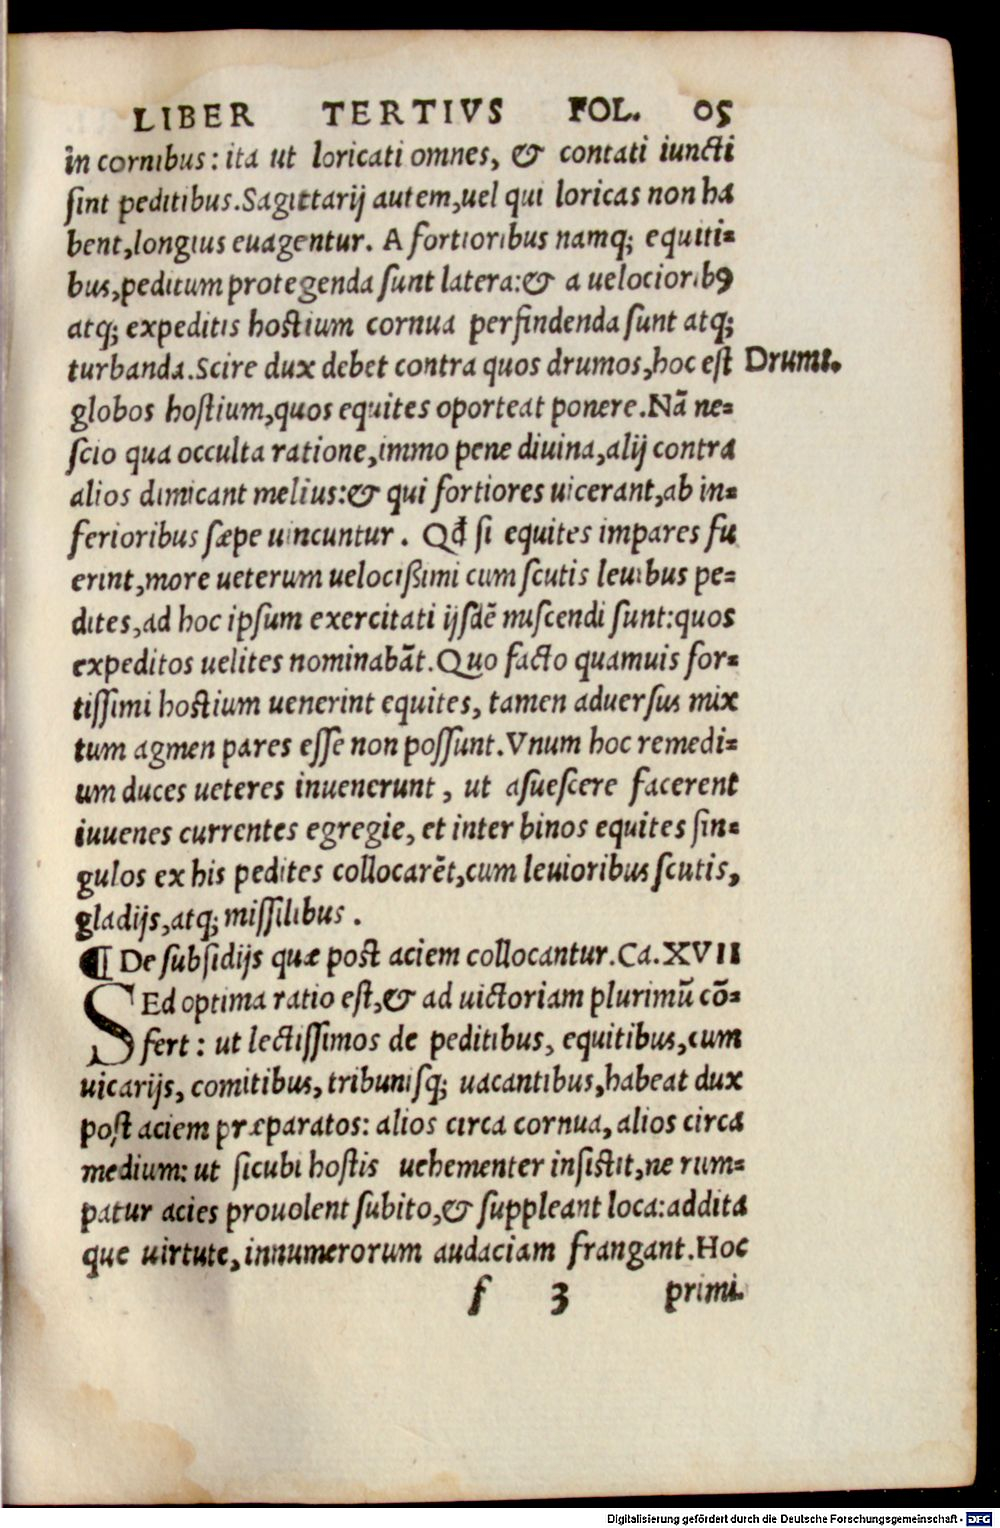 LIBER TERTIVS FOL. 05
in cornibus: ita ut loricati omnes, & contati iuncti
ſint peditibus. Sagittarij autem, uel qui loricas non ha
bent, longius euagentur. A fortioribus namq; equiti=
bus, peditum protegenda ſunt latera: & a uelociorib9
atq; expeditis hoſtium cornua perfindenda ſunt atq;
turbanda. Scire dux debet contra quos drumos, hoc eſt
Drumi.
globos hoſtium, quos equites oporteat ponere. Nã ne=
ſcio qua occulta ratione, immo pene diuina, alij contra
alios dimicant melius: & qui fortiores uicerant, ab in=
ferioribus ſæpe uincuntur. Qđ ſi equites impares fu
erint, more ueterum uelocißimi cum ſcutis leuibus pe=
dites, ad hoc ipſum exercitati ijſdẽ miſcendi ſunt: quos
expeditos uelites nominabãt. Quo facto quamuis for=
tiſſimi hoſtium uenerint equites, tamen aduerſus mix
tum agmen pares eſſe non poſſunt. Vnum hoc remedi=
um duces ueteres inuenerunt, ut aſueſcere facerent
iuuenes currentes egregie, et inter binos equites ſin=
gulos ex his pedites collocarẽt, cum leuioribus ſcutis,
gladijs, atq; miſſilibus.
¶ De ſubſidijs quæ poſt aciem collocantur. Ca. XVII
SEd optima ratio eſt, & ad uictoriam plurimũ cõ=
fert: ut lectiſſimos de peditibus, equitibus, cum
uicarijs, comitibus, tribuniſq; uacantibus, habeat dux
poſt aciem præparatos: alios circa cornua, alios circa
medium: ut ſicubi hoſtis uehementer inſiſtit, ne rum=
patur acies prouolent ſubito, & ſuppleant loca: addita
que uirtute, innumerorum audaciam frangant. Hoc
f 3 primi.
Digitalisierung gefördert durch die Deutsche Forschungsgemeinschaft - DFG